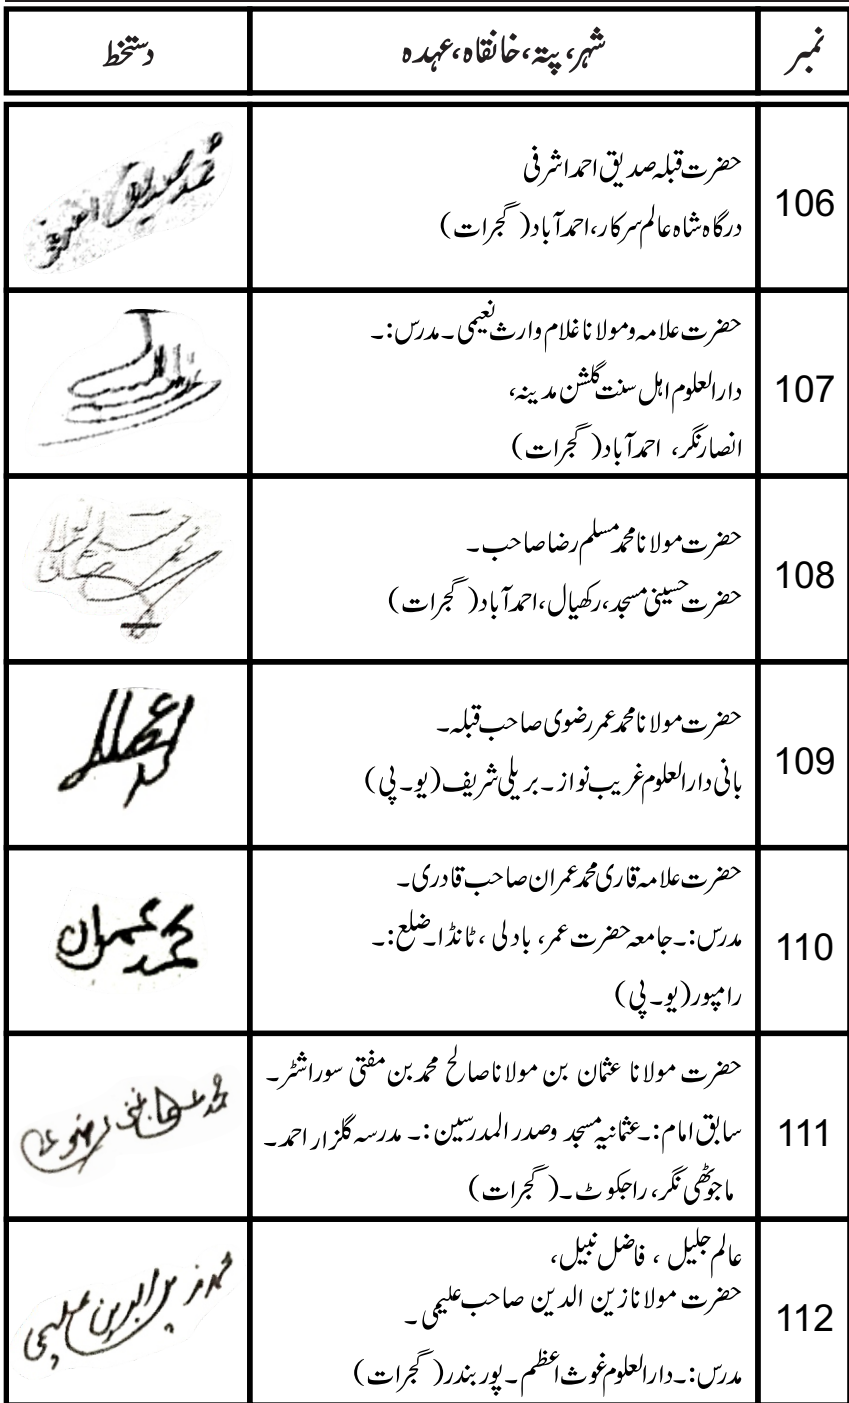 نمبر شہر، پتہ، خانقاہ، عہدہ دستخط
106
حضرت قبلہ صدیق احمد اشرفی
درگاہ شاہ عالم سرکار، احمد آباد (گجرات)
107
حضرت علامہ و مولانا غلام وارث نعیمی۔ مدرس:۔
دارالعلوم اہل سنت گلشن مدینہ،
انصار نگر، احمد آباد (گجرات)
108
حضرت مولانا محمد مسلم رضا صاحب۔
حضرت حسینی مسجد، رکھیال، احمد آباد (گجرات)
109
حضرت مولانا محمد عمر رضوی صاحب قبلہ۔
بانی دارالعلوم غریب نواز۔ بریلی شریف (یو۔ پی)
110
حضرت علامہ قاری محمد عمران صاحب قادری۔
مدرس:۔ جامعہ حضرت عمر، بادلی، ٹانڈا۔ ضلع:۔
رامپور (یو۔ پی)
محمد عمران
111
حضرت مولانا عثمان بن مولانا صالح محمد بن مفتی سوراشٹر۔
سابق امام:۔ عثمانیہ مسجد وصدر المدرسین:۔ مدرسہ گلزار احمد۔
ماجوٹھی نگر، راجکوٹ۔ (گجرات)
112
عالم جلیل، فاضل نبیل،
حضرت مولانا زین الدین صاحب علیمی۔
مدرس:۔ دارالعلوم غوث اعظم۔ پور بندر (گجرات)
محمد زین الدین علیمی